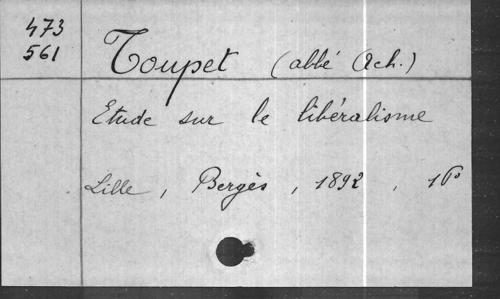 473
561
Toupet (abbé Ach.)
Etude sur le libéralisme
Lille, Bergès, 1892, 16°